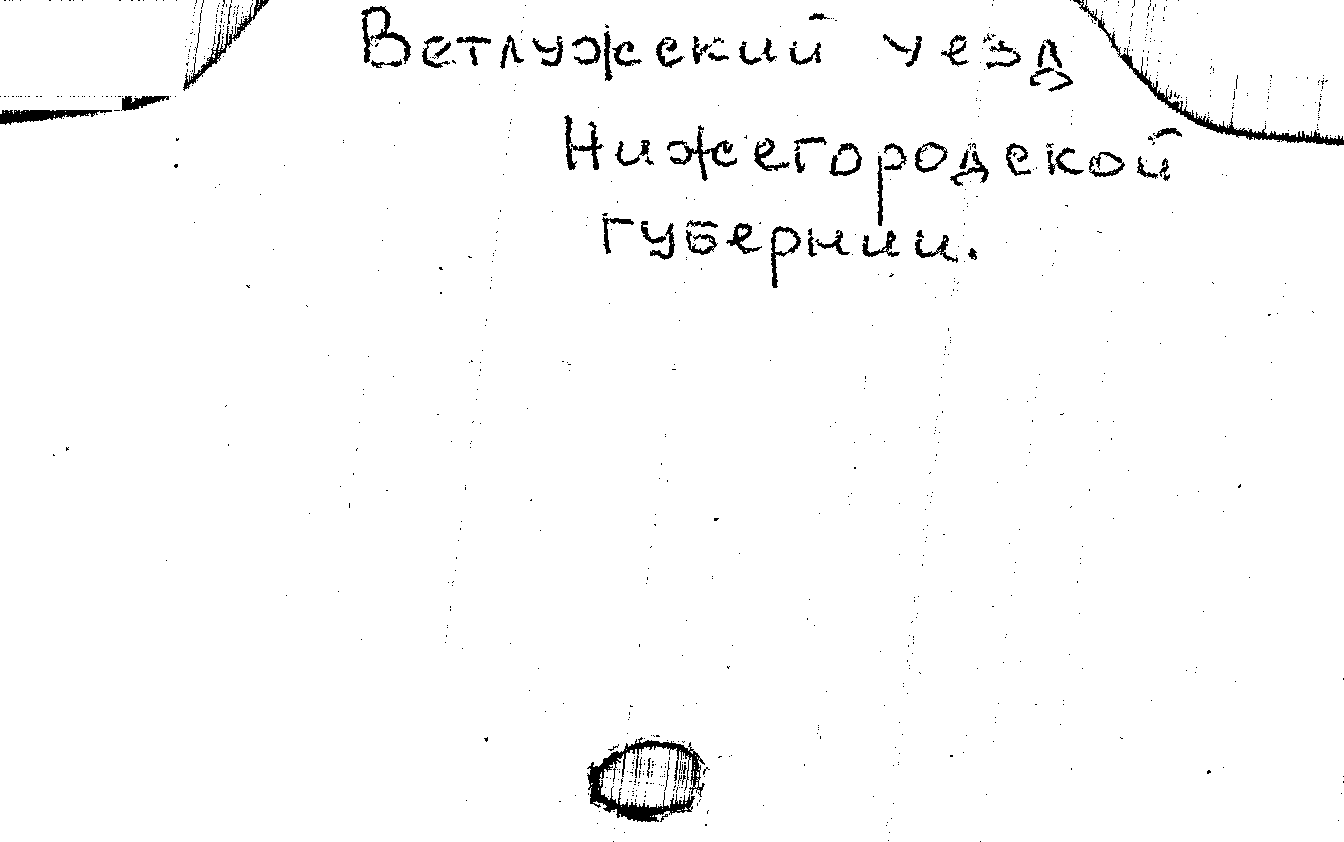 Ветлужский уезд
Нижегородской
губернии.